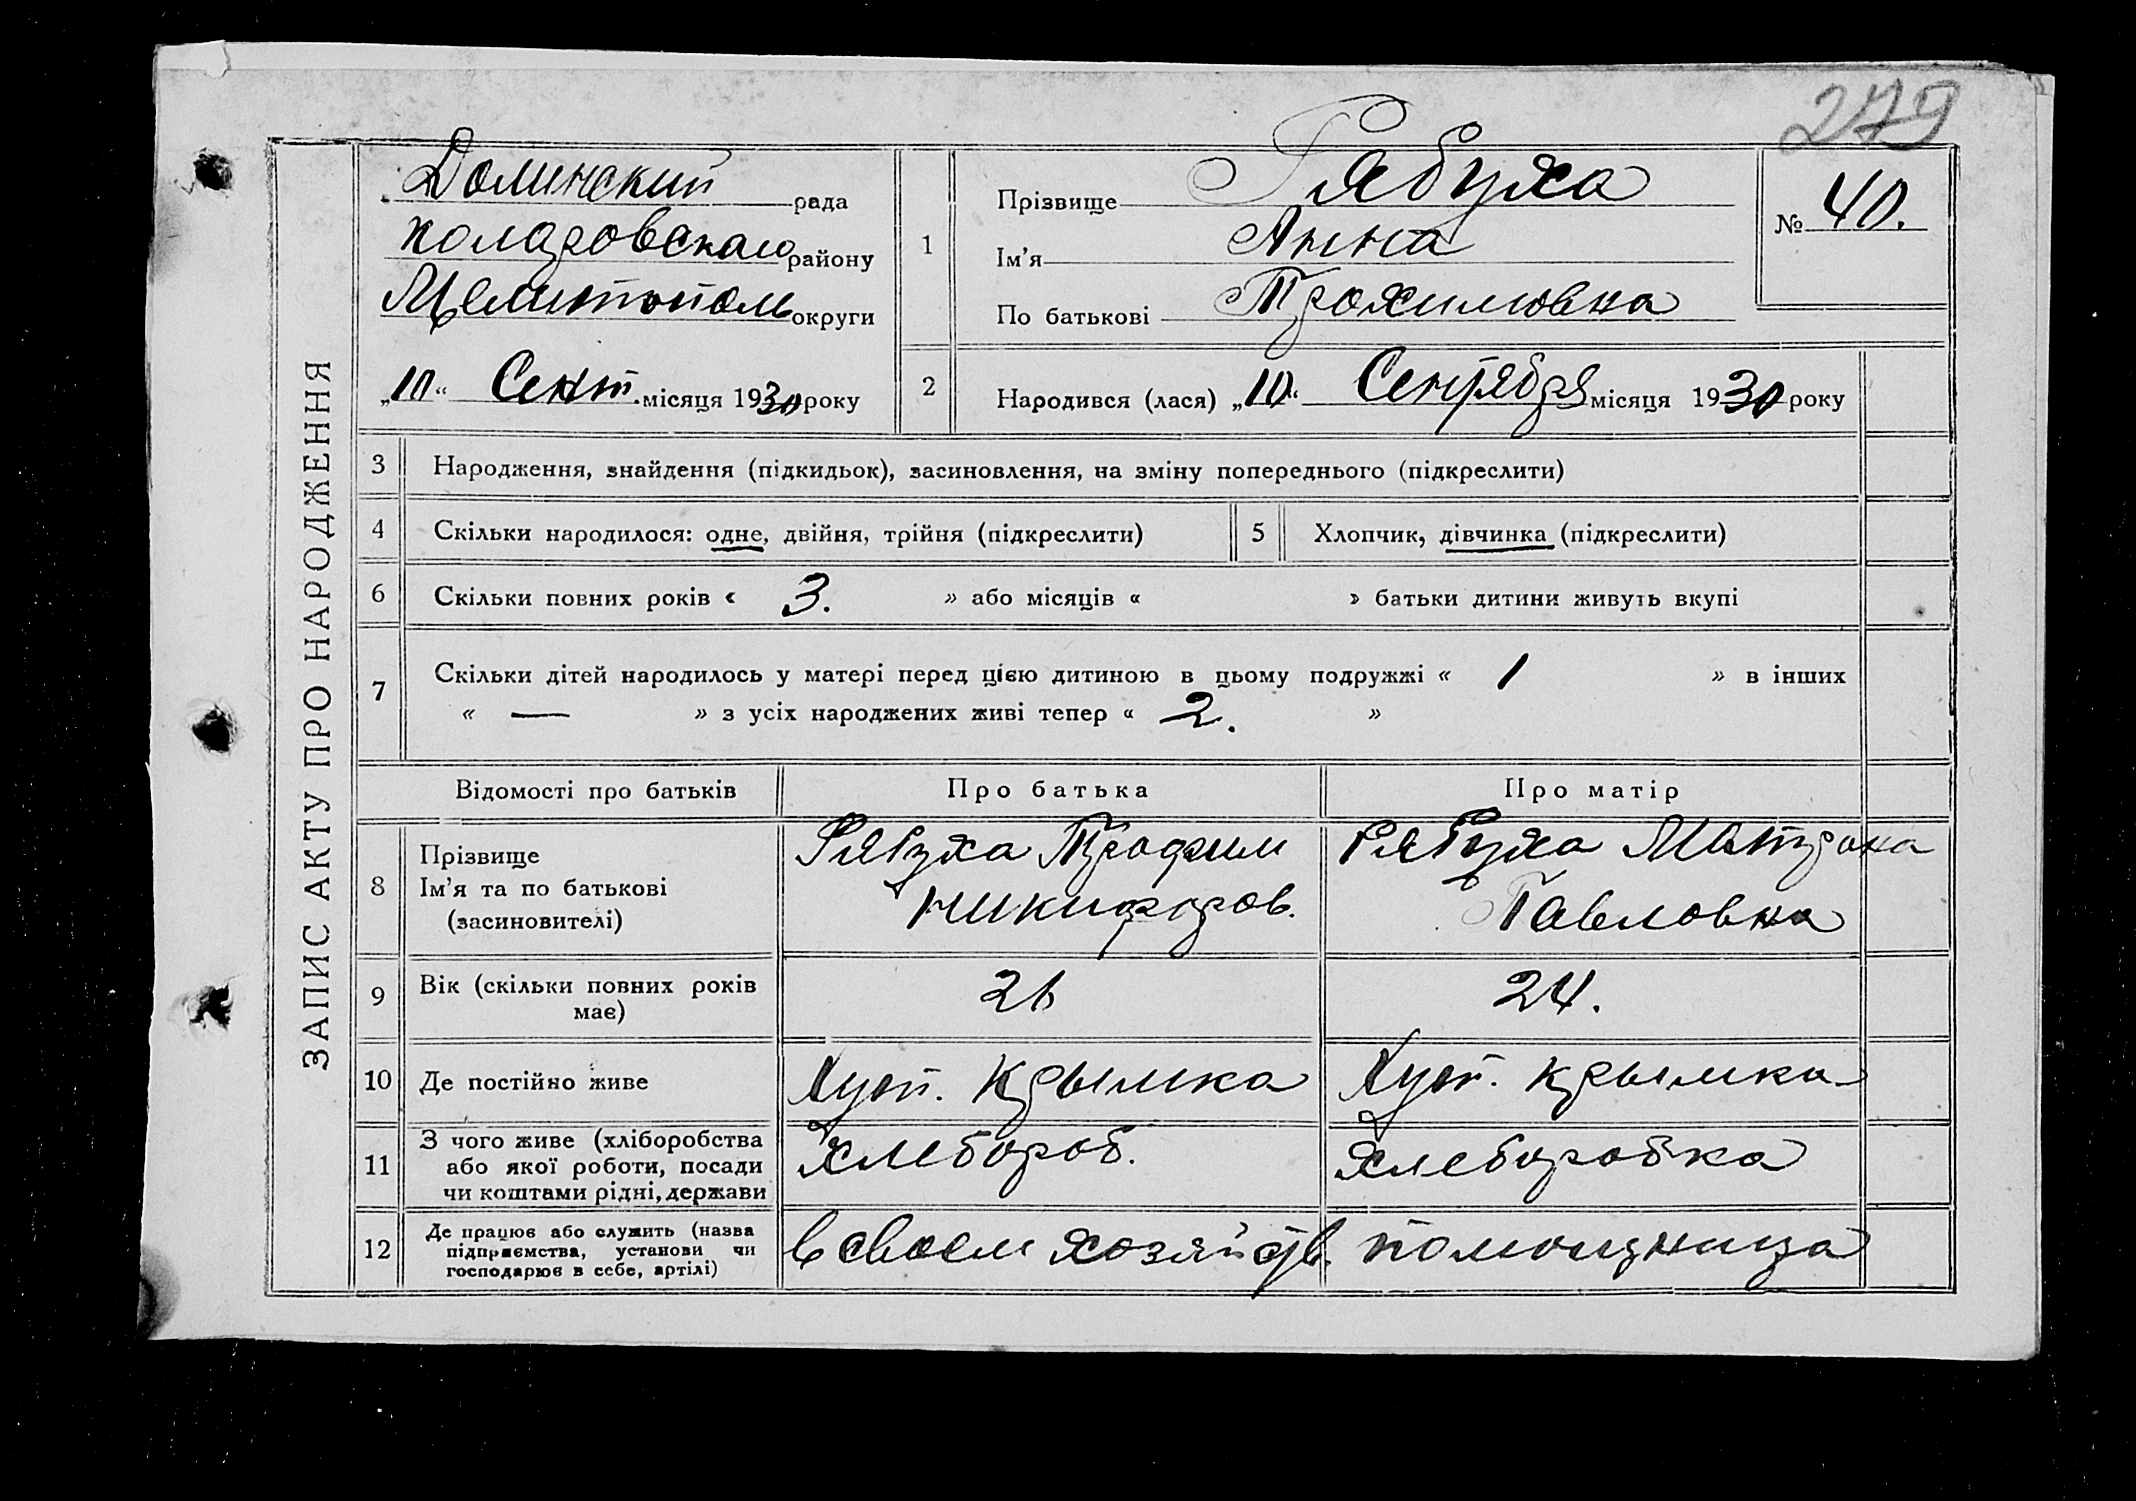 279
ЗАПИС АКТУ ПРО НАРОДЖЕННЯ
Долинский рада
Коларовскаго району
Мелитополь округи
„10“ Сент. місяця 1930 року
1
Прізвище Рябуха
Ім’я Анна
По батькові Трохимовна
№ 40.
2 Народився (лася) „10“ Сентрября місяця 1930 року
3 Народження, знайдення (підкидьок), засиновлення, на зміну попереднього (підкреслити)
4 Скільки народилося: одне, двійня, трійня (підкреслити)
5 Хлопчик, дівчинка (підкреслити)
6 Скільки повних років « 3. » або місяців « » батьки дитини живуть вкупі
7 Скільки дітей народилось у матері перед цією дитиною в цьому подружжі « 1 » в інших
« — » з усіх народжених живі тепер « 2. »
Відомості про батьків Про батька Про матір
8 Прізвище
Ім’я та по батькові
(засиновителі)
Рябуха Трофим
Никифоров.
Рябуха Матрона
Павловна
9 Вік (скільки повних років
має)
26 24.
10 Де постійно живе Хут. Крымка Хут. Крымка
11 З чого живе (хліборобства
або якої роботи, посади
чи коштами рідні, держави
Хлебороб. Хлеборобка
12 Де працює або служить (назва
підприємства, установи чи
господарює в себе, артілі)
в своем хозяйств. помощница